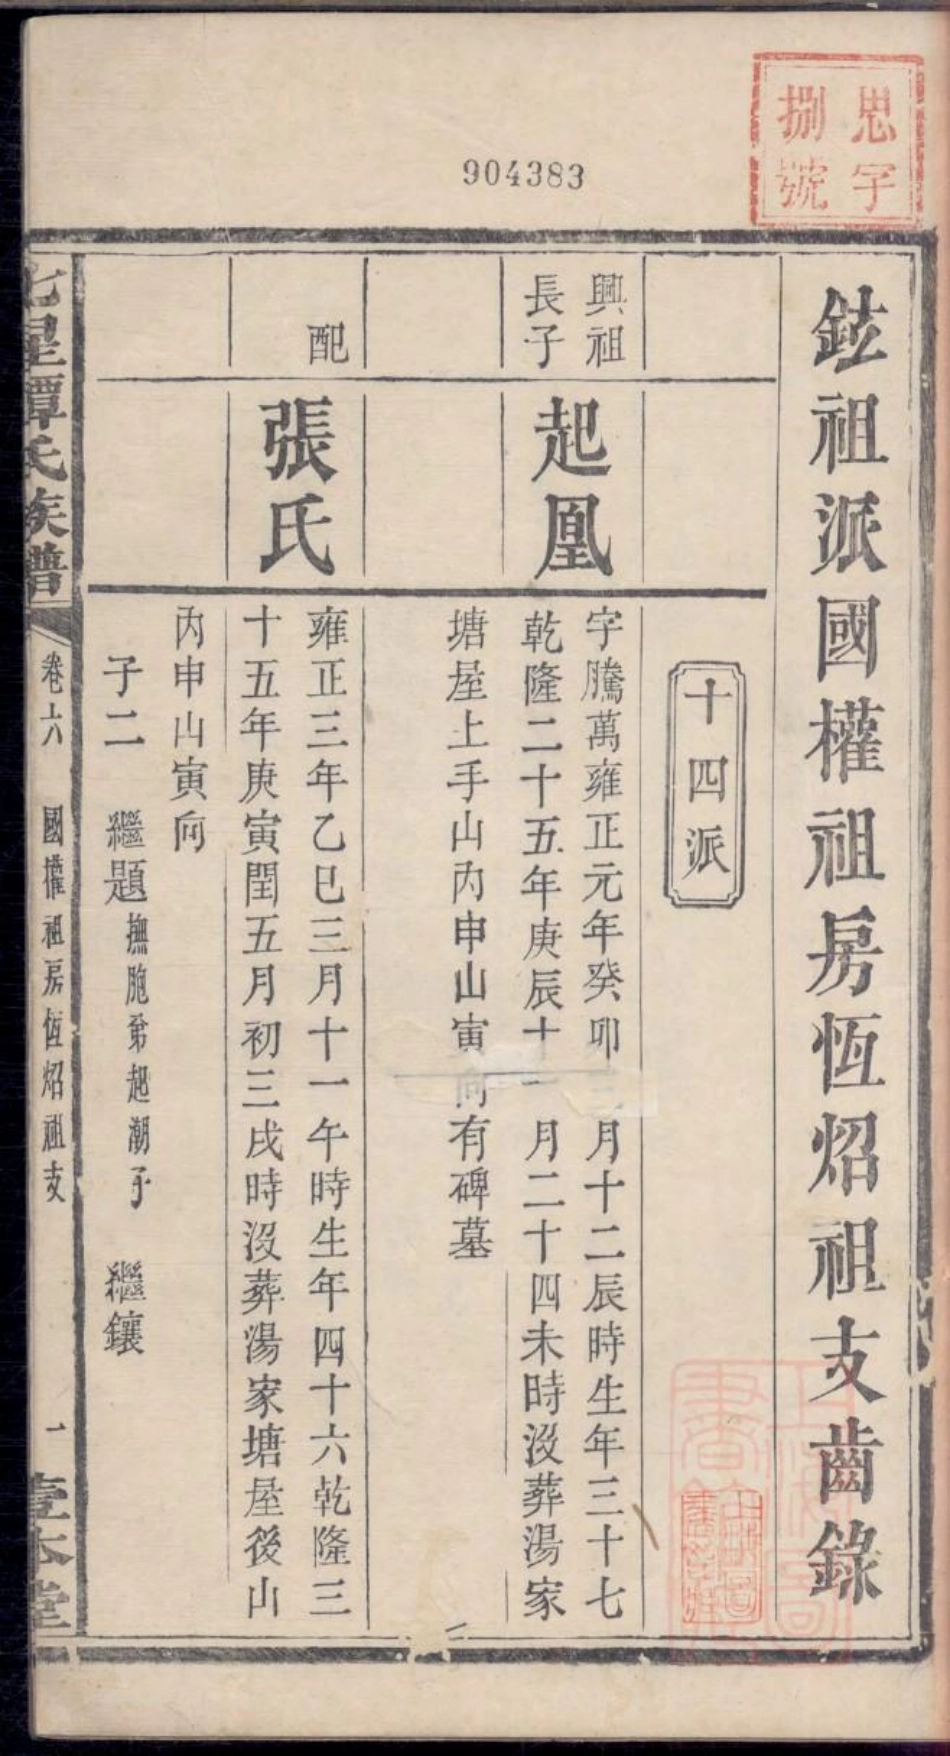 904383
思字
捌號
鉉祖派國權祖房恆炤祖支齒錄
十四派
興祖
長子
起凰
字騰萬雍正元年癸卯 月十二辰時生年三十七
乾隆二十五年庚辰十一月二十四未時沒葬湯家
塘屋上手山丙申山寅向有碑墓
配
張氏
雍正三年乙巳三月十一午時生年四十六乾隆三
十五年庚寅閏五月初三戌時沒葬湯家塘屋後山
丙申山寅向
子二 繼題撫胞弟起潮子 繼鑲
七星譚氏族譜 卷六 國權祖房恆炤祖支 一 壹本堂